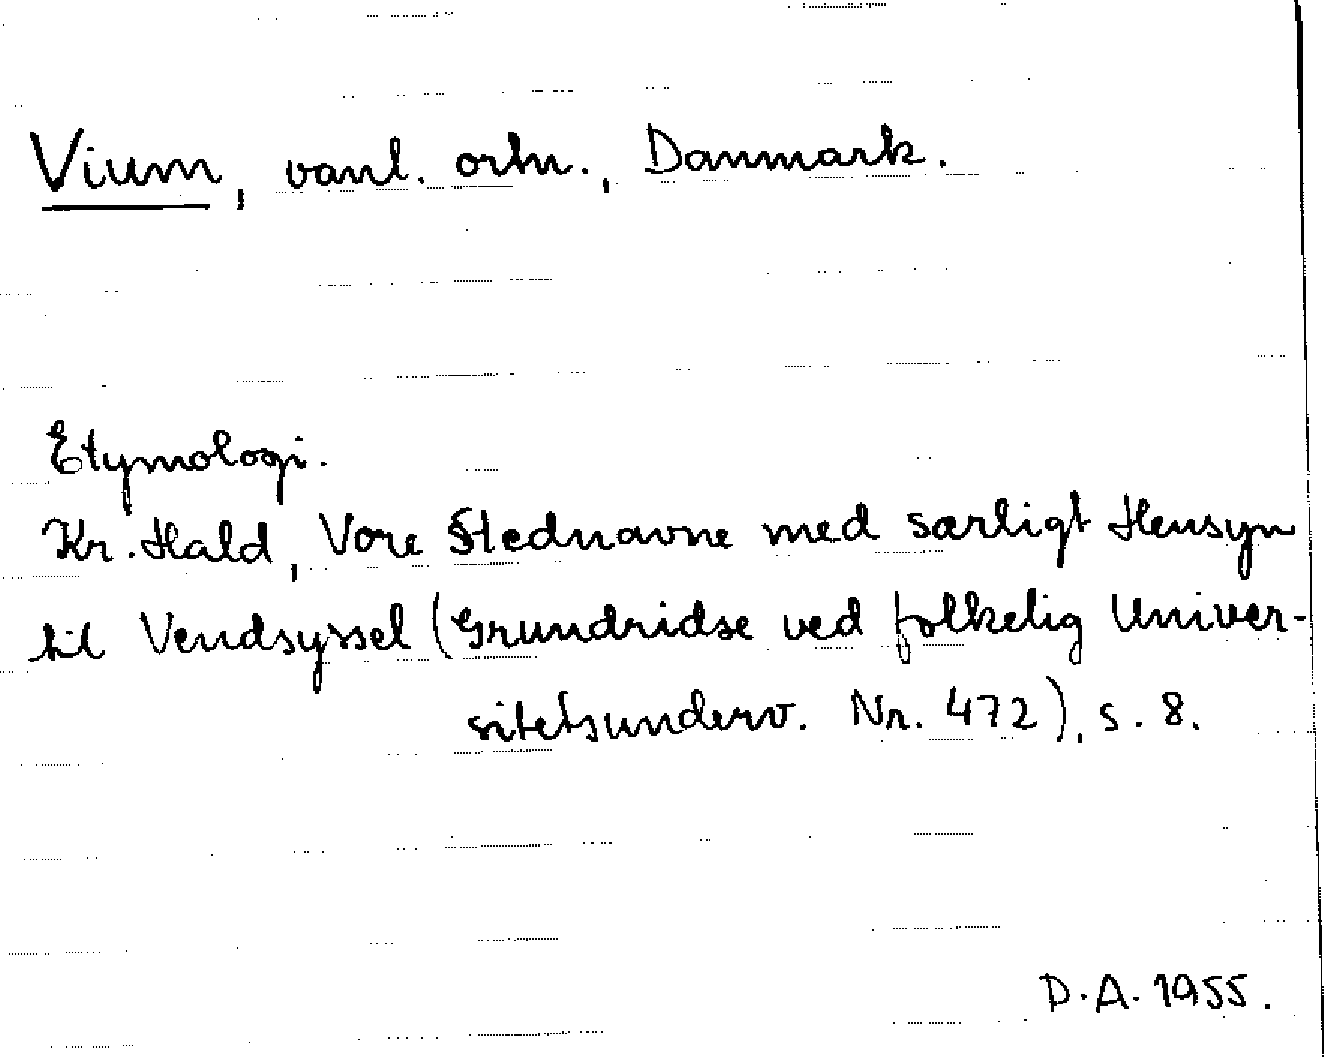 Vium, vanl. ortn., Danmark.
Etymologi.
Kr. Hald, Vore Stednavne med særligt Hensyn
til Vendsyssel (Grundridse ved folkelig Univer-
sitetsunderv. Nr. 472), s. 8.
D.A. 1955.